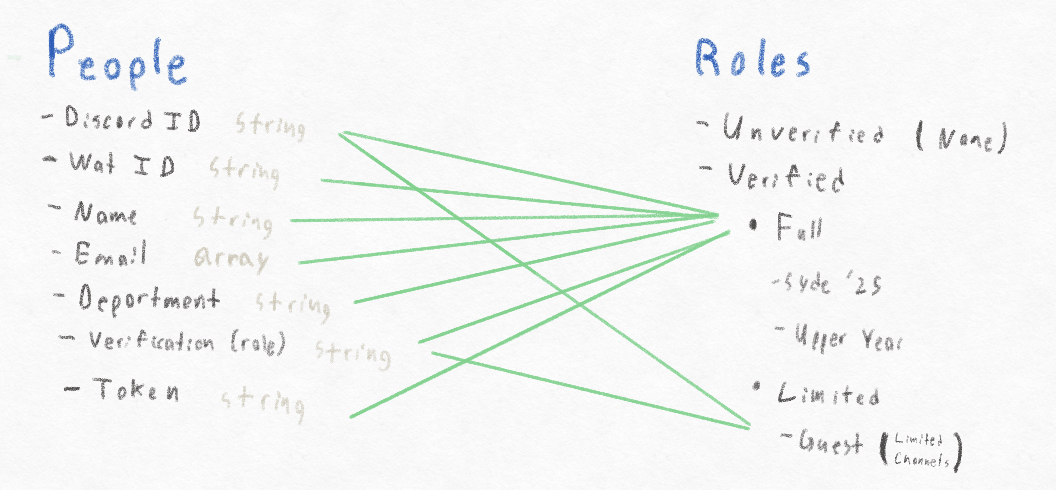 People
- Discord ID string
- Wat ID string
- Name string
- Email array
- Department string
- Verification (role) string
- Token string
Roles
- Unverified (None)
- Verified
• Full
- Syde '25
- Upper Year
• Limited
- Guest (Limited Channels)